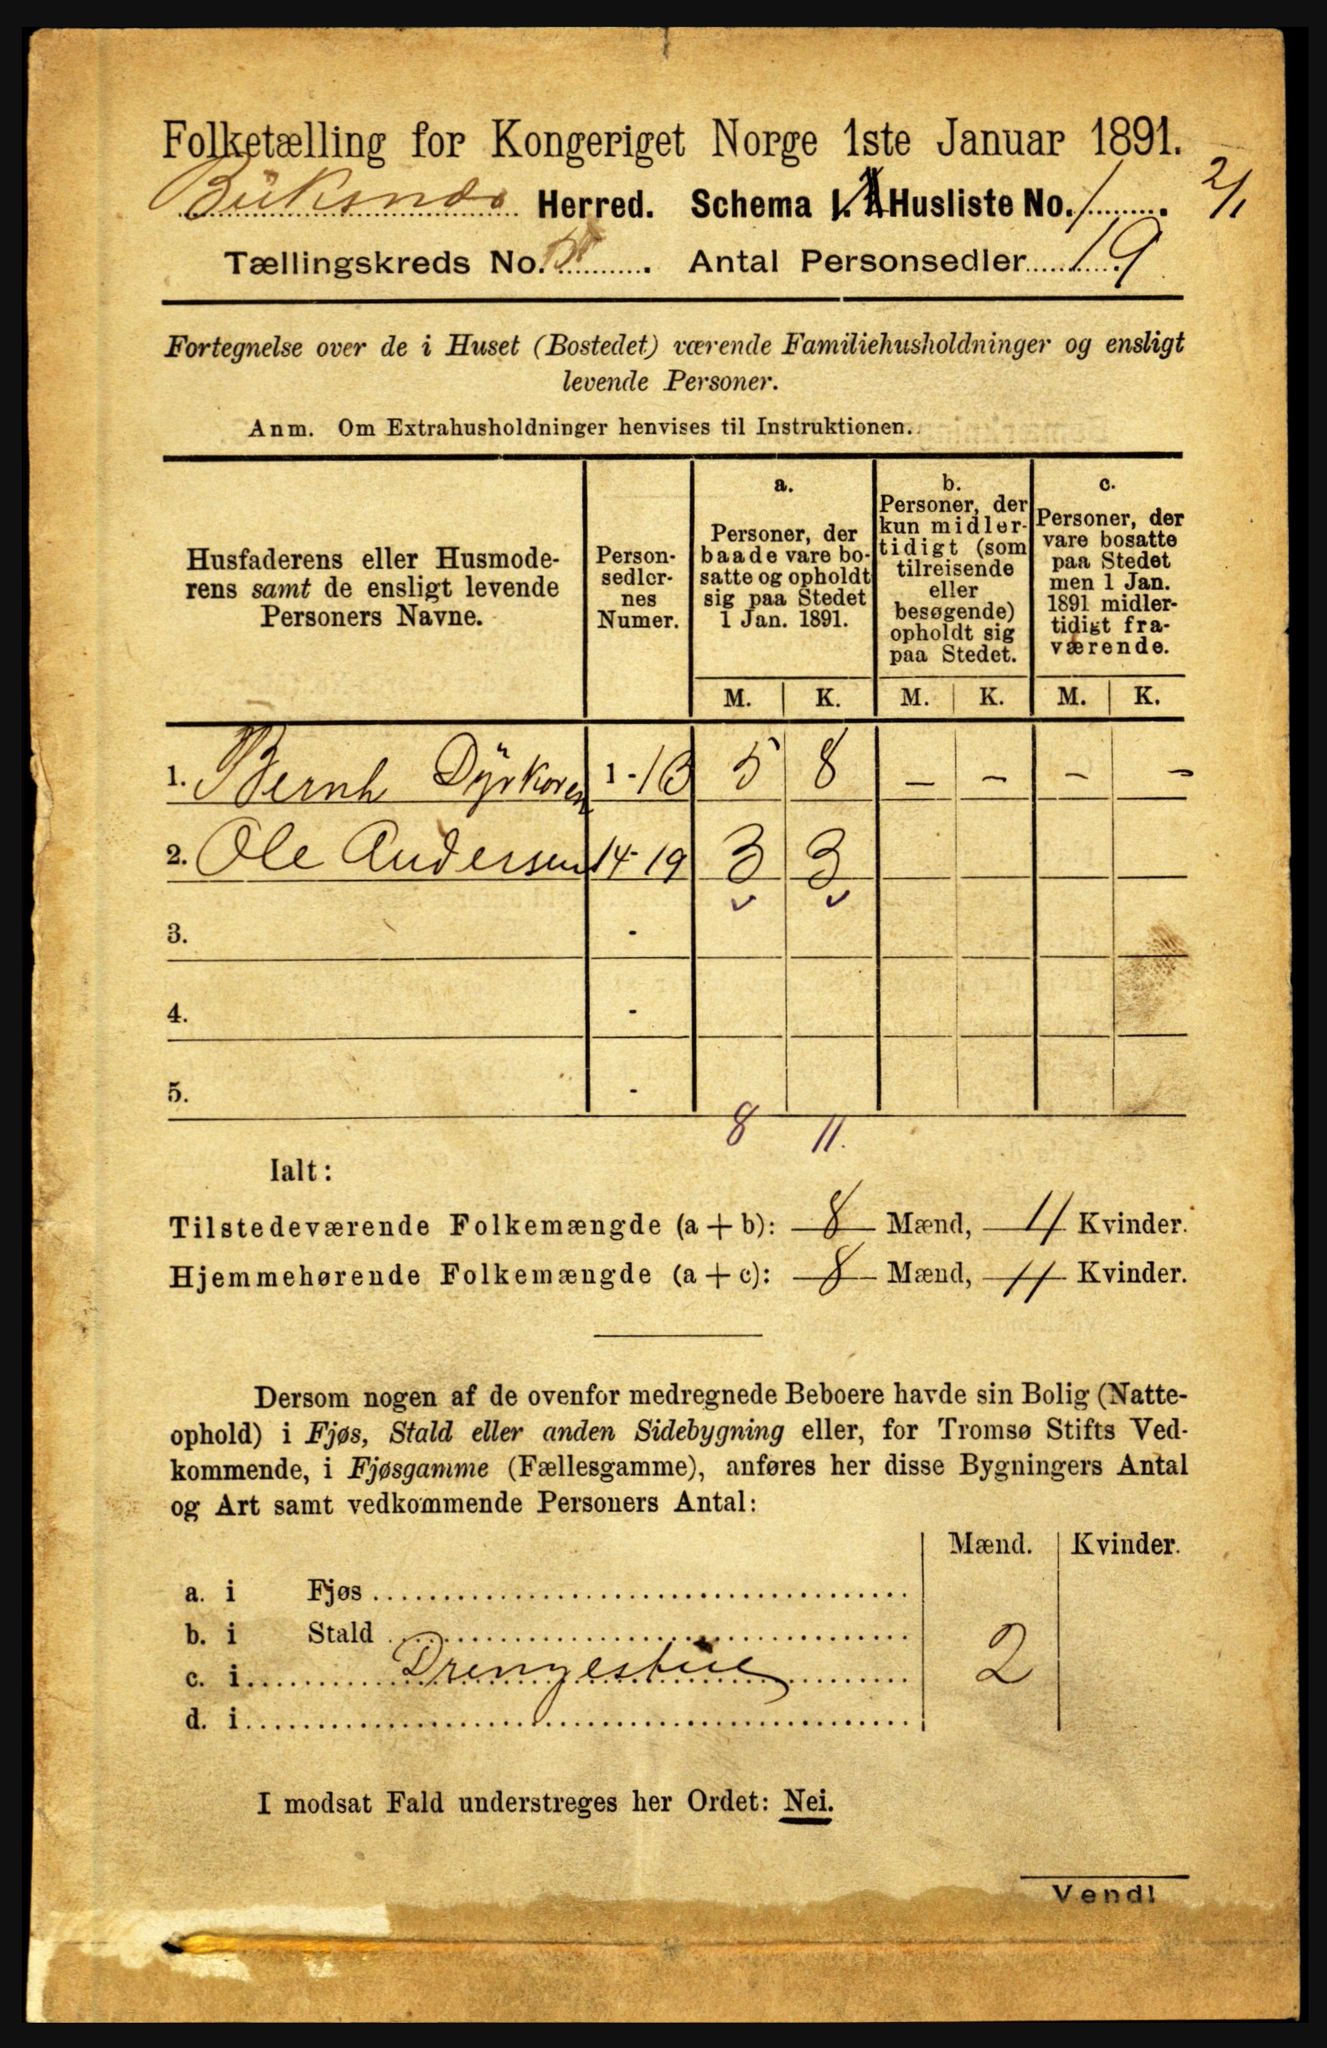 Folketælling for Kongeriget Norge 1ste Januar 1891.
Buksnæs Herred. Schema 1. Husliste No. 1. 2/1
Tællingskreds No. . Antal Personsedler 19
Fortegnelse over de i Huset (Bostedet) værende Familiehusholdninger og ensligt
levende Personer.
Anm. Om Extrahusholdninger henvises til Instruktionen.
Husfaderens eller Husmode-
rens samt de ensligt levende
Personers Navne.
Person-
sedler-
nes
Numer.
a.
Personer, der
baade vare bo-
satte og opholdt
sig paa Stedet
1 Jan. 1891.
b.
Personer, der
kun midler-
tidigt (som
tilreisende
eller
besøgende)
opholdt sig
paa Stedet.
c.
Personer, der
vare bosatte
paa Stedet
men 1 Jan.
1891 midler-
tidigt fra-
værende.
M. K. M. K. M. K.
1. Bernh Dyrkoren 1-13 5 8 - - - -
2. Ole Andersen 14-19 3 3
3. -
4. -
5. -
8 11.
Ialt:
Tilstedeværende Folkemængde (a+b): 8 Mænd, 11 Kvinder.
Hjemmehørende Folkemængde (a+c): 8 Mænd, 11 Kvinder.
Dersom nogen af de ovenfor medregnede Beboere havde sin Bolig (Natte-
ophold) i Fjøs, Stald eller anden Sidebygning eller, for Tromsø Stifts Ved-
kommende, i Fjøsgamme (Fællesgamme), anføres her disse Bygningers Antal
og Art samt vedkommende Personers Antal:
Mænd. Kvinder.
a. i Fjøs
b. i Stald
c. i Drengestue 2
d. i
I modsat Fald understreges her Ordet: Nei.
Vend!